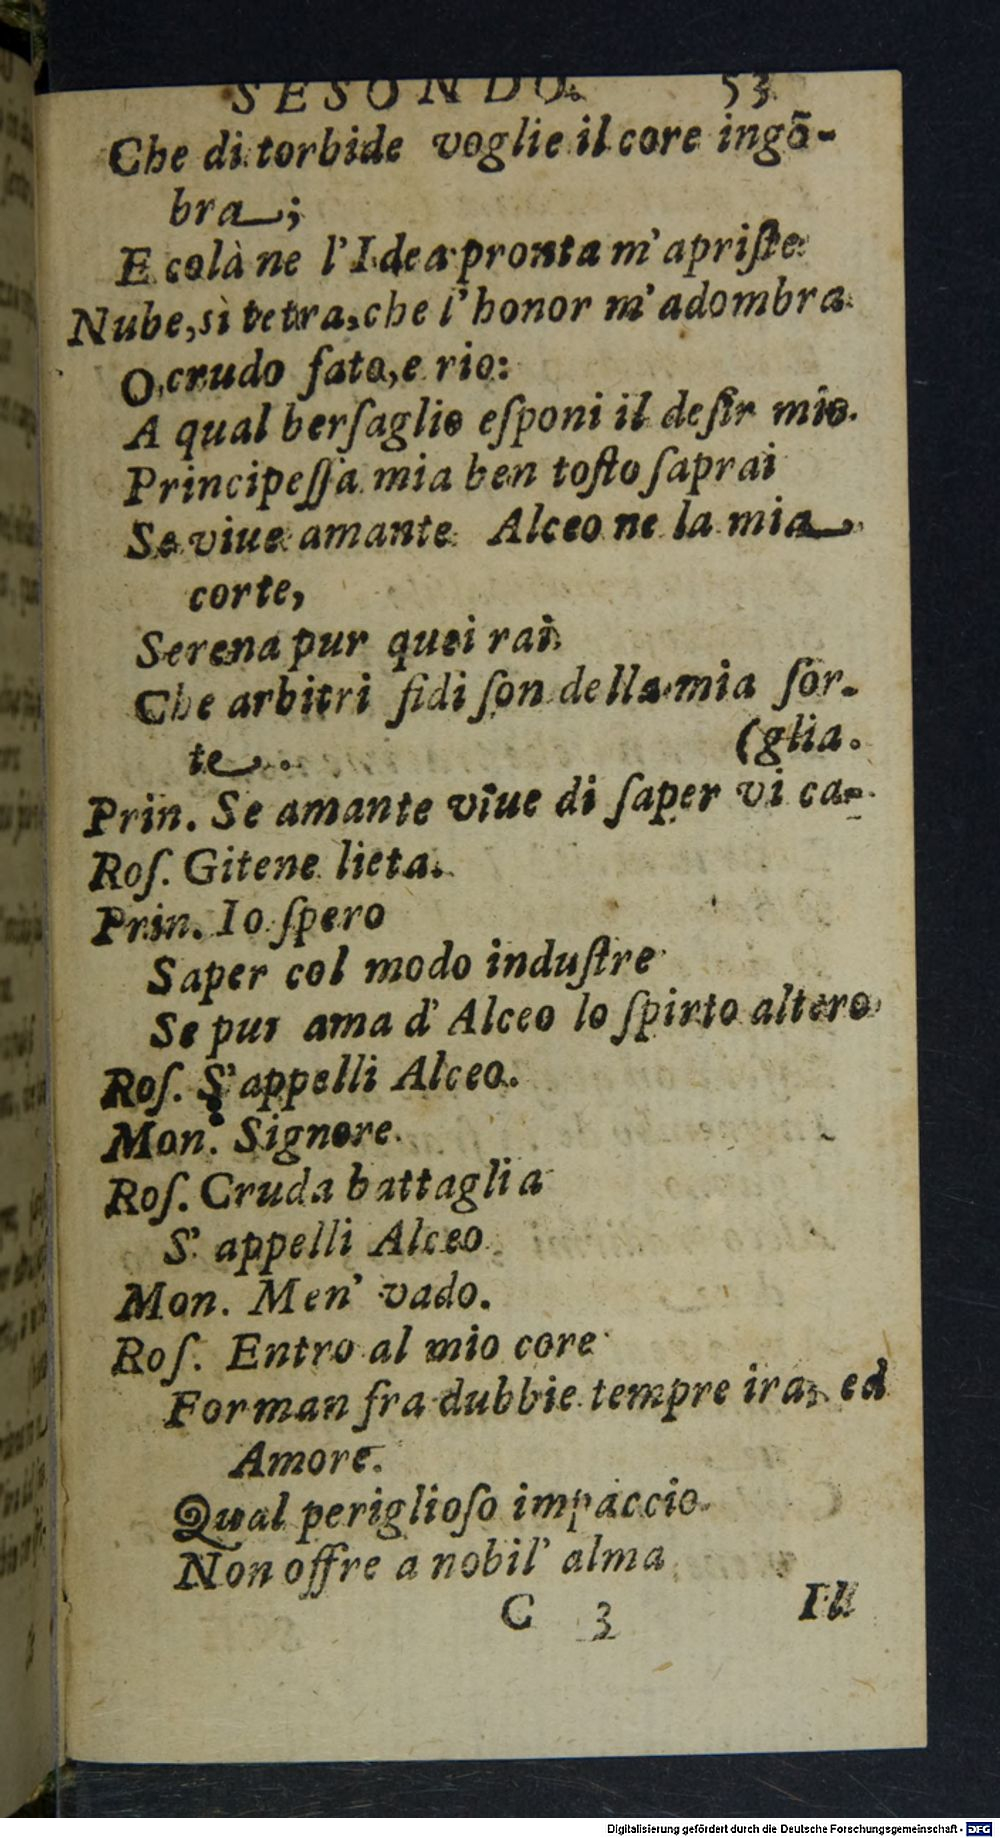 SESONDO. 53
Che di torbide voglie il core ingõ-
bra;
E colà ne l'Idea pronta m'apriſte
Nube, sì tetra, che l'honor m'adombra.
O crudo fato, e rio:
A qual berſaglio eſponi il deſir mio.
Principeſſa mia ben toſto ſaprai
Se viue amante Alceo ne la mia
corte,
Serena pur quei rai
Che arbitri fidi ſon della mia ſor-
te.
(glia.
Prin. Se amante viue di ſaper vi ca-
Roſ. Gitene lieta.
Prin. Io ſpero
Saper col modo induſtre
Se pur ama d'Alceo lo ſpirto altero
Roſ. S'appelli Alceo.
Mon. Signore.
Roſ. Cruda battaglia
S'appelli Alceo
Mon. Men' vado.
Roſ. Entro al mio core
Forman fra dubbie tempre ira, ed
Amore.
Qual periglioſo impaccio
Non offre a nobil' alma
C 3 Il
Digitalisierung gefördert durch die Deutsche Forschungsgemeinschaft - DFG